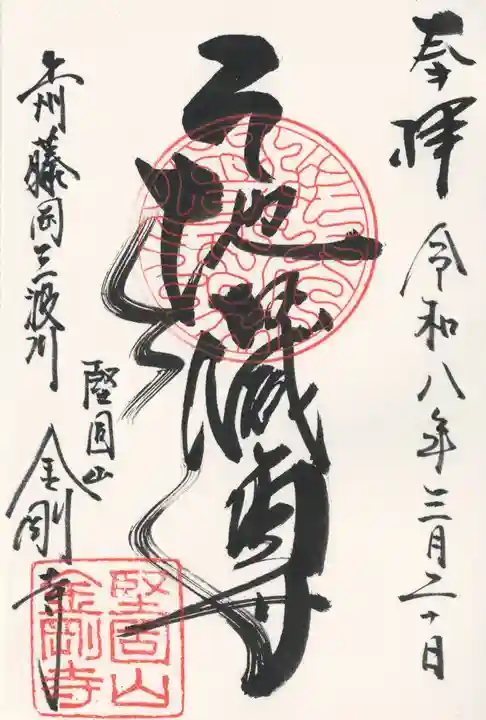 奉拝 令和八年三月二十日
地蔵尊
上州藤岡三波川
堅固山
金剛寺
堅固山
金剛寺